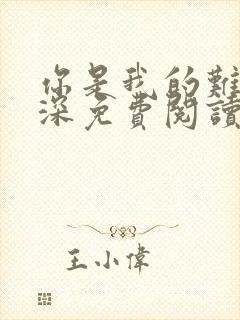 你是我的難
深免費閱讀
王小偉